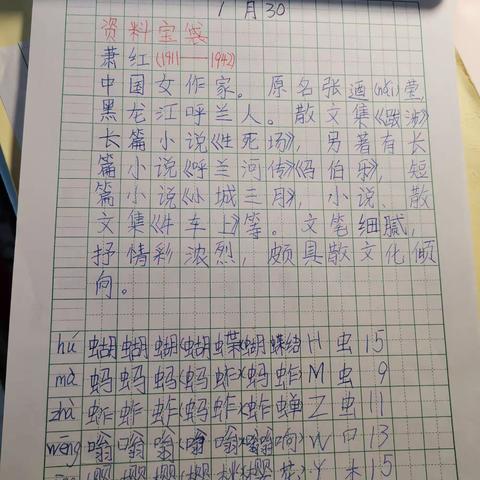 1月30
资料宝袋
萧红(1911——1942)
中国女作家。原名张迺(nǎi)莹,
黑龙江呼兰人。散文集《跋涉》
长篇小说《生死场》,另著有长
篇小说《呼兰河传》《马伯乐》,短
篇小说《小城三月》,小说、散
文集《牛车上》等。文笔细腻,
抒情彩浓烈,颇具散文化倾
向。
hú 蝴蝴蝴(蝴蝶)(蝴蝶结)H虫15
mà 蚂蚂蚂(蚂蚱)(蚂蚱)M虫9
zhà 蚱蚱蚱(蚂蚱)(蚱蝉)Z虫11
wēng 嗡嗡嗡(嗡嗡)(嗡嗡响)W口13
樱樱樱(樱桃)(樱花)Y木15